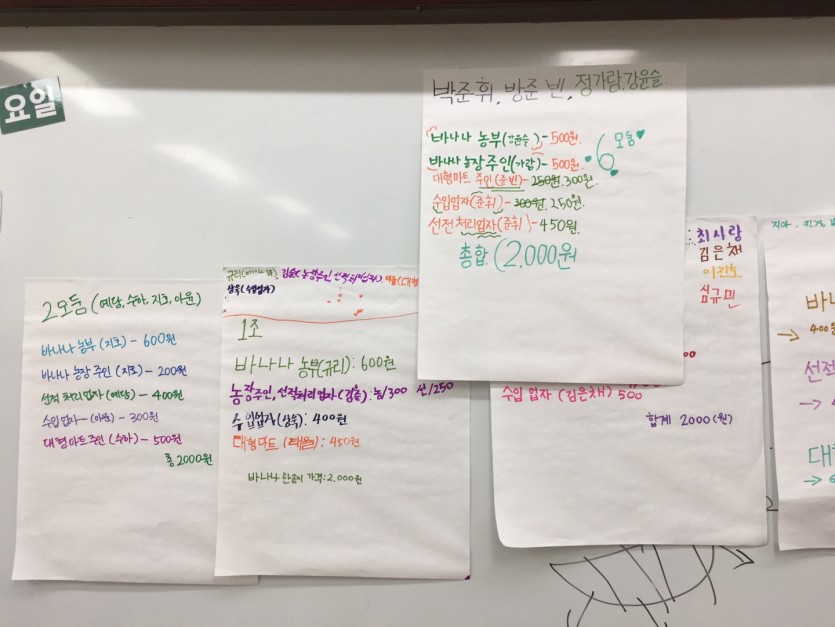 요일
박준휘, 방준빈, 정가람, 강윤슬
바나나 농부(강윤슬)-500원
바나나 농장주인(가람)-500원.
대형마트 주인(준빈)-250원.300원.
수입업자(준휘)-300원.250원.
선적 처리업자(준휘)-450원.
총합 2,000원
6모둠
2모둠 (예당, 수하, 지호, 아윤)
바나나 농부 (지호) - 600원
바나나 농장 주인 (지호) - 200원
선적 처리 업자 (예당) - 400원
수입 업자 - (아윤) - 300원
대형마트주인 (수하) - 500원
총 2000원
1조
바나나 농부(규리): 600원
농장주인, 선적처리업자(김윤): 농/300 선/250
수입업자(상욱): 400원
대형마트 (태율): 450원
바나나 한송이 가격: 2,000원
최사랑
김은채
이찬호
심규민
00
수입 업자 (김은채) 500
합계 2000(원)
바나
→ 400원
선적
→
대형
→